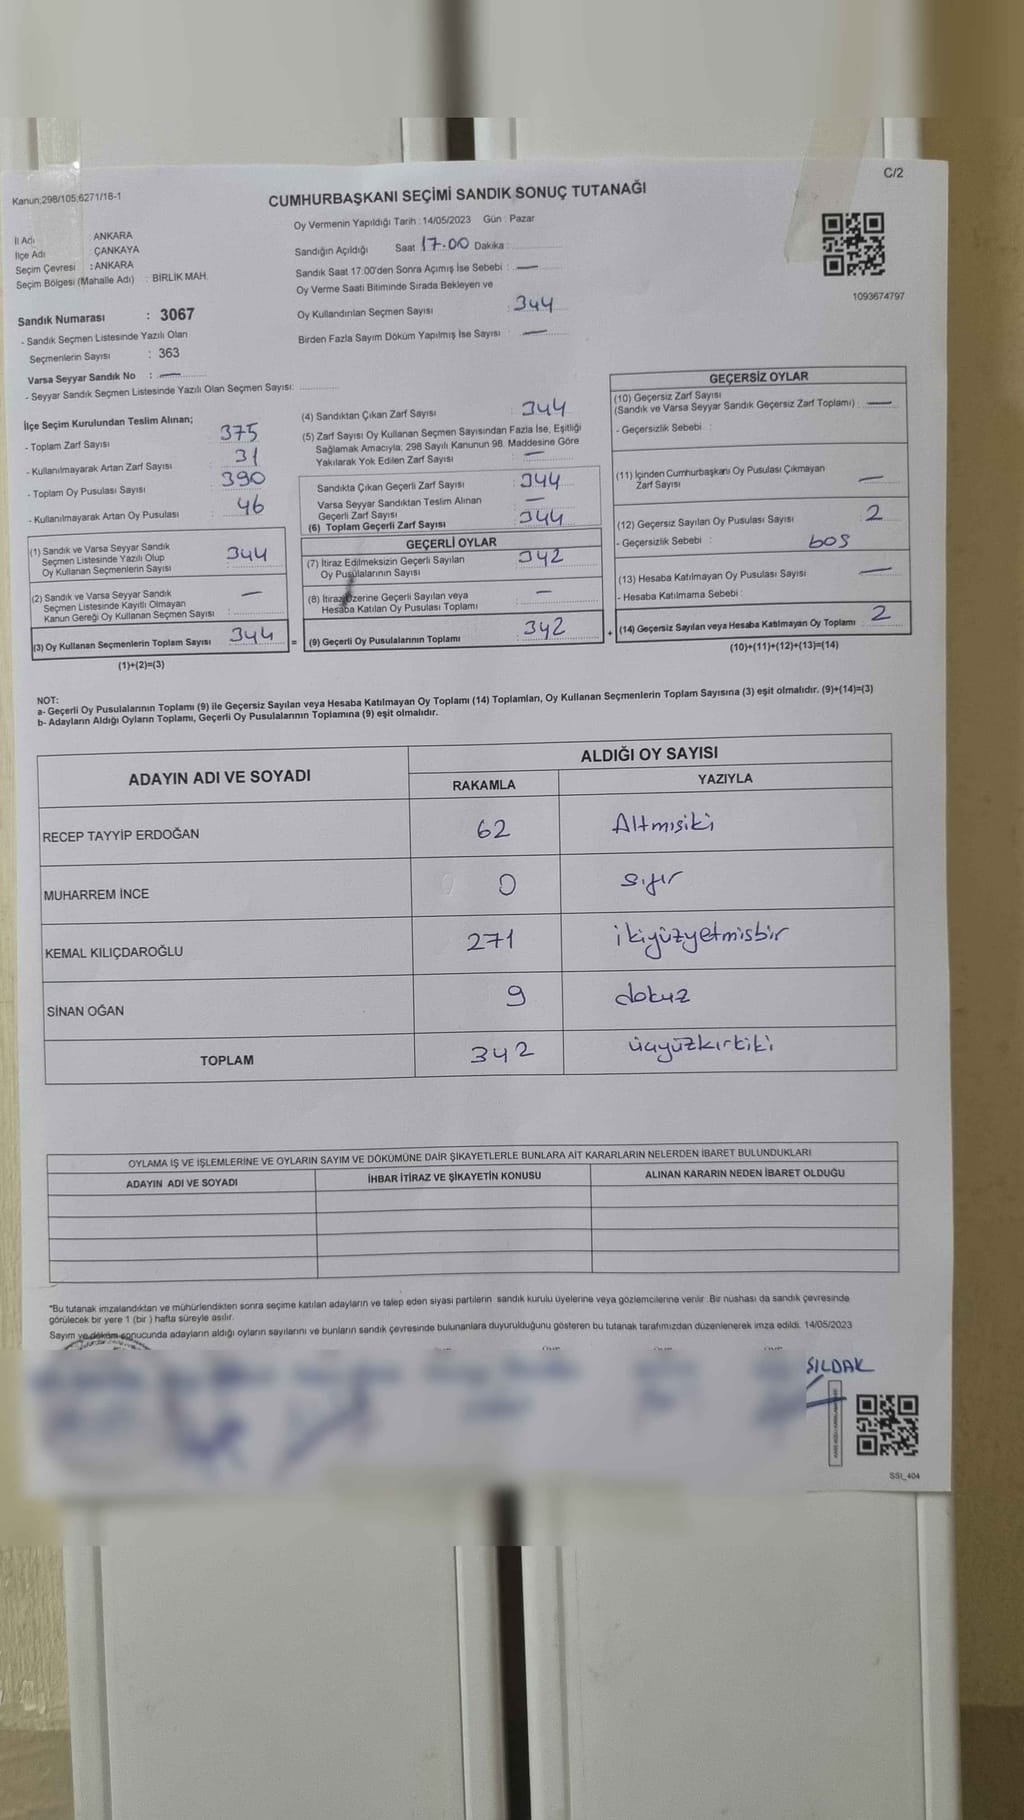 C/2
Kanun;298/105;6271/16-1
CUMHURBAŞKANI SEÇİMİ SANDIK SONUÇ TUTANAĞI
Oy Vermenin Yapıldığı Tarih : 14/05/2023 Gün : Pazar
İl Adı ANKARA
İlçe Adı : ÇANKAYA
Seçim Çevresi : ANKARA
Seçim Bölgesi (Mahalle Adı) : BİRLİK MAH.
Sandığın Açıldığı Saat 17.00 Dakika :
Sandık Saat 17.00'den Sonra Açımış İse Sebebi : —
Oy Verme Saati Bitiminde Sırada Bekleyen ve
Oy Kullandırılan Seçmen Sayısı : 344
Birden Fazla Sayım Döküm Yapılmış İse Sayısı : —
1093674797
Sandık Numarası : 3067
- Sandık Seçmen Listesinde Yazılı Olan
Seçmenlerin Sayısı : 363
Varsa Seyyar Sandık No : —
- Seyyar Sandık Seçmen Listesinde Yazılı Olan Seçmen Sayısı:
İlçe Seçim Kurulundan Teslim Alınan;
- Toplam Zarf Sayısı 375
- Kullanılmayarak Artan Zarf Sayısı 31
- Toplam Oy Pusulası Sayısı 390
- Kullanılmayarak Artan Oy Pusulası 46
(1) Sandık ve Varsa Seyyar Sandık
Seçmen Listesinde Yazılı Olup
Oy Kullanan Seçmenlerin Sayısı 344
(2) Sandık ve Varsa Seyyar Sandık
Seçmen Listesinde Kayıtlı Olmayan
Kanun Gereği Oy Kullanan Seçmen Sayısı : —
(3) Oy Kullanan Seçmenlerin Toplam Sayısı 344 =
(1)+(2)=(3)
(4) Sandıktan Çıkan Zarf Sayısı : 344
(5) Zarf Sayısı Oy Kullanan Seçmen Sayısından Fazla İse, Eşitliği
Sağlamak Amacıyla; 298 Sayılı Kanunun 98. Maddesine Göre
Yakılarak Yok Edilen Zarf Sayısı : —
Sandıkta Çıkan Geçerli Zarf Sayısı : 344
Varsa Seyyar Sandıktan Teslim Alınan
Geçerli Zarf Sayısı : —
(6) Toplam Geçerli Zarf Sayısı : 344
GEÇERLİ OYLAR
(7) İtiraz Edilmeksizin Geçerli Sayılan
Oy Pusulalarının Sayısı : 342
(8) İtiraz Üzerine Geçerli Sayılan veya
Hesaba Katılan Oy Pusulası Toplamı : —
(9) Geçerli Oy Pusulalarının Toplamı : 342 +
GEÇERSİZ OYLAR
(10) Geçersiz Zarf Sayısı
(Sandık ve Varsa Seyyar Sandık Geçersiz Zarf Toplamı) : —
- Geçersizlik Sebebi :
(11) İçinden Cumhurbaşkanı Oy Pusulası Çıkmayan
Zarf Sayısı —
(12) Geçersiz Sayılan Oy Pusulası Sayısı : 2
- Geçersizlik Sebebi : boş
(13) Hesaba Katılmayan Oy Pusulası Sayısı : —
- Hesaba Katılmama Sebebi :
(14) Geçersiz Sayılan veya Hesaba Katılmayan Oy Toplamı : 2
(10)+(11)+(12)+(13)=(14)
NOT:
a- Geçerli Oy Pusulalarının Toplamı (9) ile Geçersiz Sayılan veya Hesaba Katılmayan Oy Toplamı (14) Toplamları, Oy Kullanan Seçmenlerin Toplam Sayısına (3) eşit olmalıdır. (9)+(14)=(3)
b- Adayların Aldığı Oyların Toplamı, Geçerli Oy Pusulalarının Toplamına (9) eşit olmalıdır.
ADAYIN ADI VE SOYADI
ALDIĞI OY SAYISI
RAKAMLA YAZIYLA
RECEP TAYYİP ERDOĞAN 62 Altmışiki
MUHARREM İNCE 0 sıfır
KEMAL KILIÇDAROĞLU 271 ikiyüzyetmişbir
SİNAN OĞAN 9 dokuz
TOPLAM 342 üçyüzkırkiki
OYLAMA İŞ VE İŞLEMLERİNE VE OYLARIN SAYIM VE DÖKÜMÜNE DAİR ŞİKAYETLERLE BUNLARA AİT KARARLARIN NELERDEN İBARET BULUNDUKLARI
ADAYIN ADI VE SOYADI İHBAR İTİRAZ VE ŞİKAYETİN KONUSU ALINAN KARARIN NEDEN İBARET OLDUĞU
"Bu tutanak imzalandıktan ve mühürlendikten sonra seçime katılan adayların ve talep eden siyasi partilerin sandık kurulu üyelerine veya gözlemcilerine verilir. Bir nüshası da sandık çevresinde
görülecek bir yere 1 (bir ) hafta süreyle asılır.
Sayım ve döküm sonucunda adayların aldığı oyların sayılarını ve bunların sandık çevresinde bulunanlara duyurulduğunu gösteren bu tutanak tarafımızdan düzenlenerek imza edildi. 14/05/2023
SSI_404